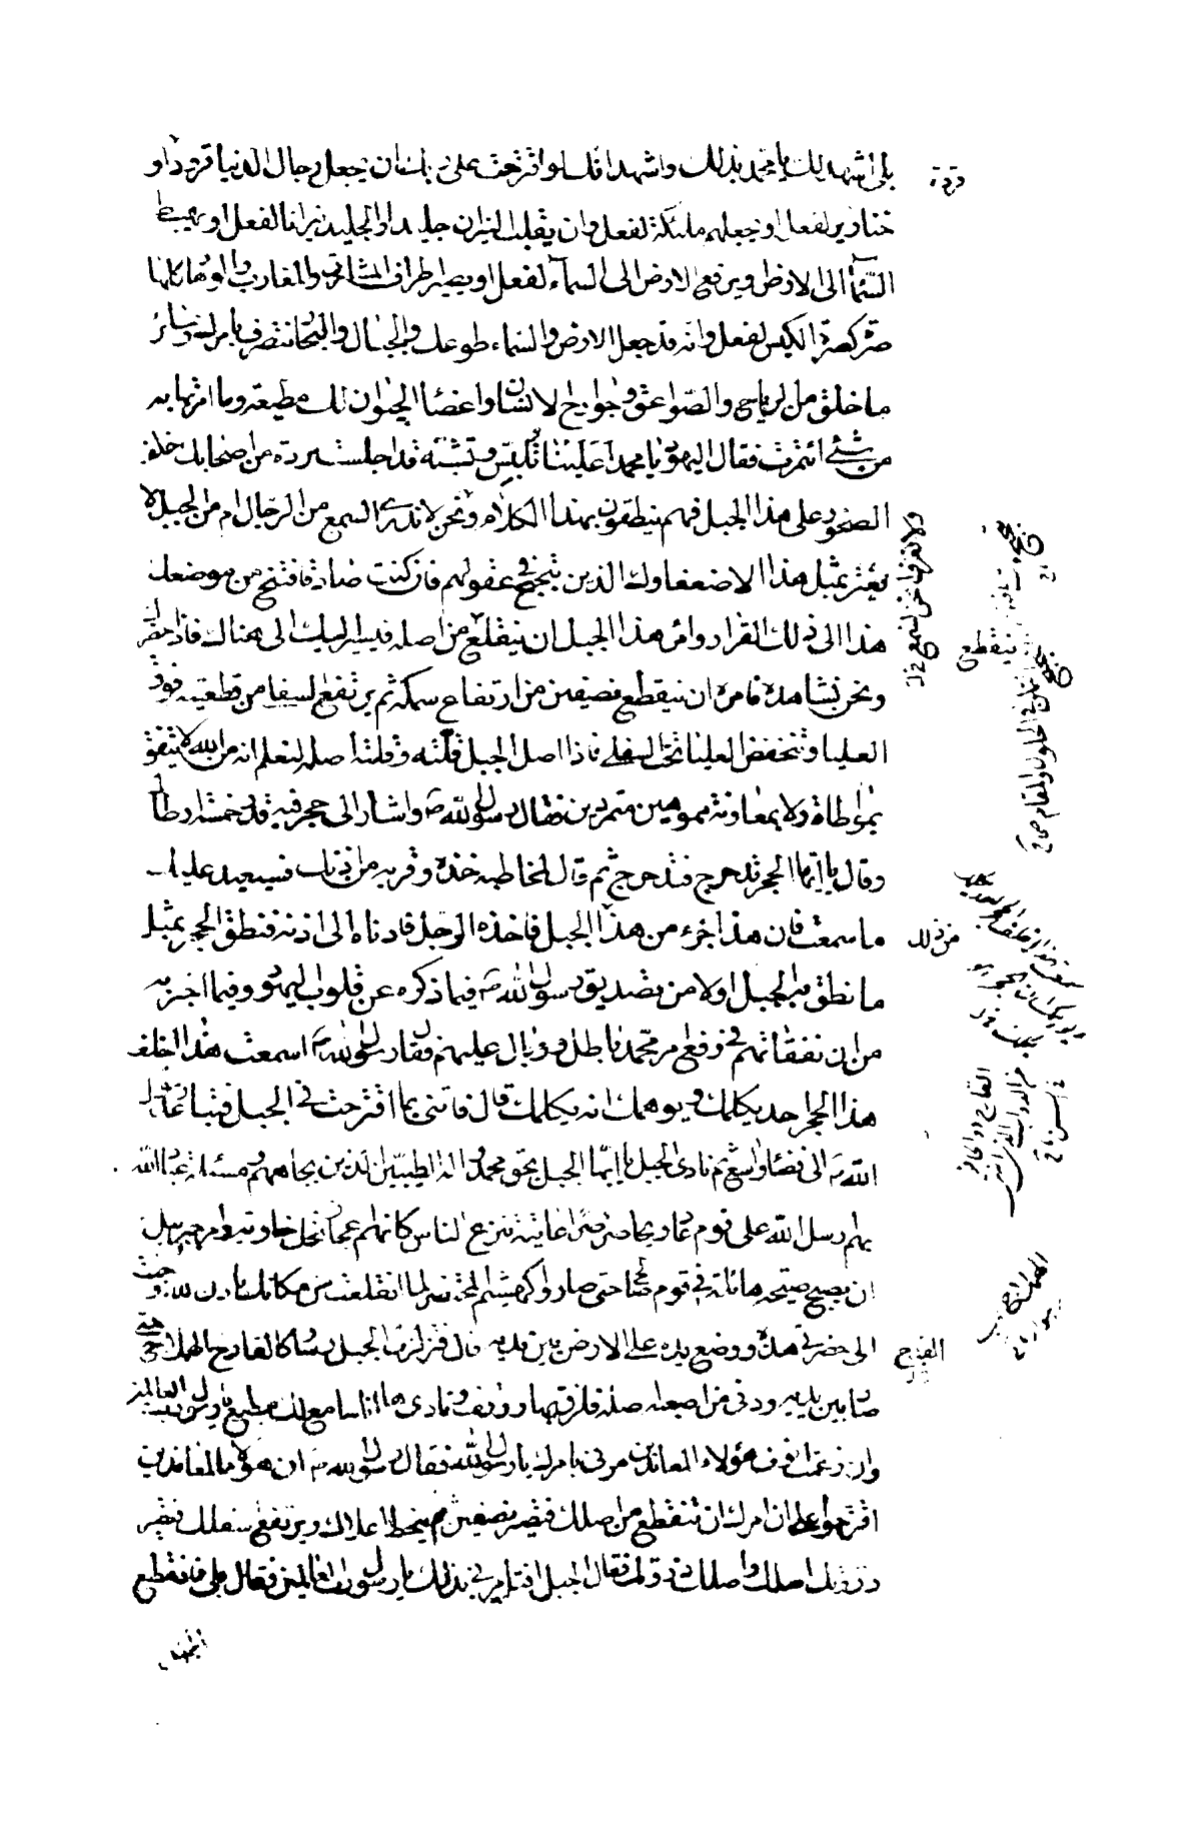 بلى اشهد لك يا محمد بذلك واشهد انك لو اقترحت على ربك ان يجعل رجال الدنيا قرودا و
خنازير لفعل او يجعلهم ملئكة لفعل وان يقلب النيران جليدا والجليد نيرانا لفعل او يهبط
السماء الى الارض او يرفع الارض الى السماء لفعل او يصير اطراف المشارق والمغارب والوهاد كلها
صرة كصرة الكيس لفعل وانه قد جعل الارض والسماء طوعك والجبال والبحار تنصرف بامرك وسائر
ما خلق من الرياح والصواعق وجوارح الانسان واعضاء الحيوان لك مطيعة وما امرتها به
من شئ ائتمرت فقال اليهود يا محمد اعلينا تلبس وتشبه قد اجلست مردة من اصحابك خلف
الصخور على هذا الجبل فهم ينطقون بهذا الكلام ونحن لا ندرى السمع من الرجال ام من الجبل لا
يغتر بمثل هذا الا ضعفاؤك الذين تبجح فى عقولهم فان كنت صادقا فتنح من موضعك
هذا الى ذلك القرار وامر هذا الجبل ان ينقلع من اصله فيسير اليك الى هناك فاذا حضرك
ونحن نشاهده فامره ان ينقطع نصفين من ارتفاع سمكه ثم ترتفع السفلى من قطعتيه فوق
العليا وتنخفض العليا تحت السفلى فاذا اصل الجبل قلته وقلته اصله لنعلم انه من الله لا يتفق
بمواطاة ولا بمعاونة مموهين متمردين فقال رسول الله ص واشار الى حجر فيه قدر خمسة ارطال
وقال يا ايها الحجر تدحرج فتدحرج ثم قال لمخاطبه خذه وقربه من اذنك فسيعيد عليك
ما سمعت فان هذا جزء من هذا الجبل فاخذه الرجل فادناه الى اذنه فنطق الحجر بمثل
ما نطق به الجبل اولا من تصديق رسول الله ص فيما ذكره عن قلوب اليهود وفيما اخبر به
من ان نفقاتهم فى دفع امر محمد باطل ووبال عليهم فقال رسول الله ص اسمعت هذا اخلف
هذا الحجر احد يكلمك ويوهمك انه يكلمك قال فاتنى بما اقترحت فى الجبل فتباعد رسول
الله ص الى فضاء واسع ثم نادى الجبل يا ايها الجبل بحق محمد وآله الطيبين الذين بجاههم ومسئلة عباد الله
بهم ارسل الله على قوم عاد ريحا صرصرا عاتية تنزع الناس كانهم اعجاز نخل خاوية وامر جبرئيل
ان يصيح صيحة هائلة فى قوم صالح حتى صاروا كهشيم المحتظر لما انقلعت من مكانك باذن الله وجئت
الى حضرتى هذه ووضع يده على الارض بين يديه قال فتزلزل الجبل وسار كالقارح الهملاج حتى
صار بين يديه ودنى من اصبعه اصله فلزق بها ووقف ونادى ها انا سامع لك مطيع يا رسول رب العالمين
وان رغمت انوف هؤلاء المعاندين مرنى بامرك يا رسول الله فقال رسول الله ص ان هؤلاء المعاندين
اقترحوا على ان امرك ان تنقطع من اصلك فتصير نصفين ثم ينحط اعلاك ويرتفع اسفلك فتصير
ذروتك اصلك واصلك ذروتك فقال الجبل افتامرنى بذلك يا رسول رب العالمين فقال بلى فانقطع
قردة
ولا نعرف ممن نسمع
ينقطع
من ذلك
القارح